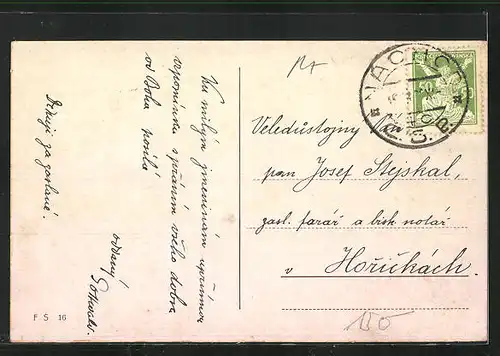 Ku milým jmeninám upřímnou
vzpomínku s přáním všeho dobra
od Boha posílá
oddaný
Děkuji za zaslané.
F S 16
NÁCHOD
Veledůstojný
pan Josef Stejskal,
zasl. farář a bisk. notář
v Hořičkách.
150